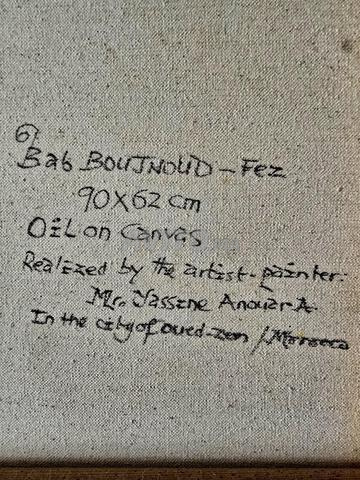 6)
Bab BOUJNOUD - Fez
90X62 cm
OiL on Canvas
Realized by the artist-painter:
Mr. Yassine Anouar-A.
In the city of oued-zem / Morocco